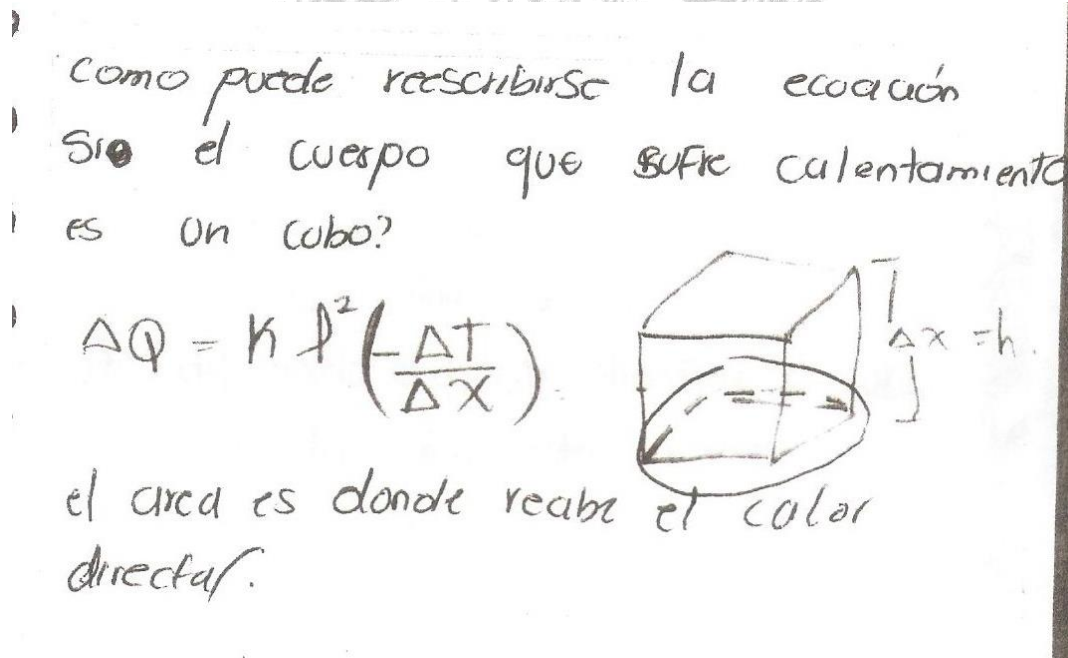 Como puede reescribirse la ecuación
Si el cuerpo que sufre calentamiento
es un cubo?
ΔQ = K l² (-ΔT/ΔX)
Δx = h.
el area es donde recibe el calor
directa/.